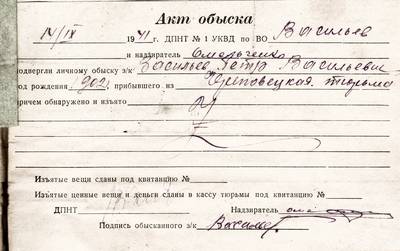 Акт обыска
14/IX 1941 г. ДПНТ № 1 УКВД по ВО Васильев
и надзиратель Омельченко
подвергли личному обыску з/к Васильев Петра Васильевич
год рождения 902 прибывшего из Череповецкая тюрьма
причем обнаружено и изъято
Изъятые вещи сданы под квитанцию №
Изъятые ценные вещи и деньги сданы в кассу тюрьмы под квитанцию №
ДПНТ Надзиратель
Подпись обысканного з/к